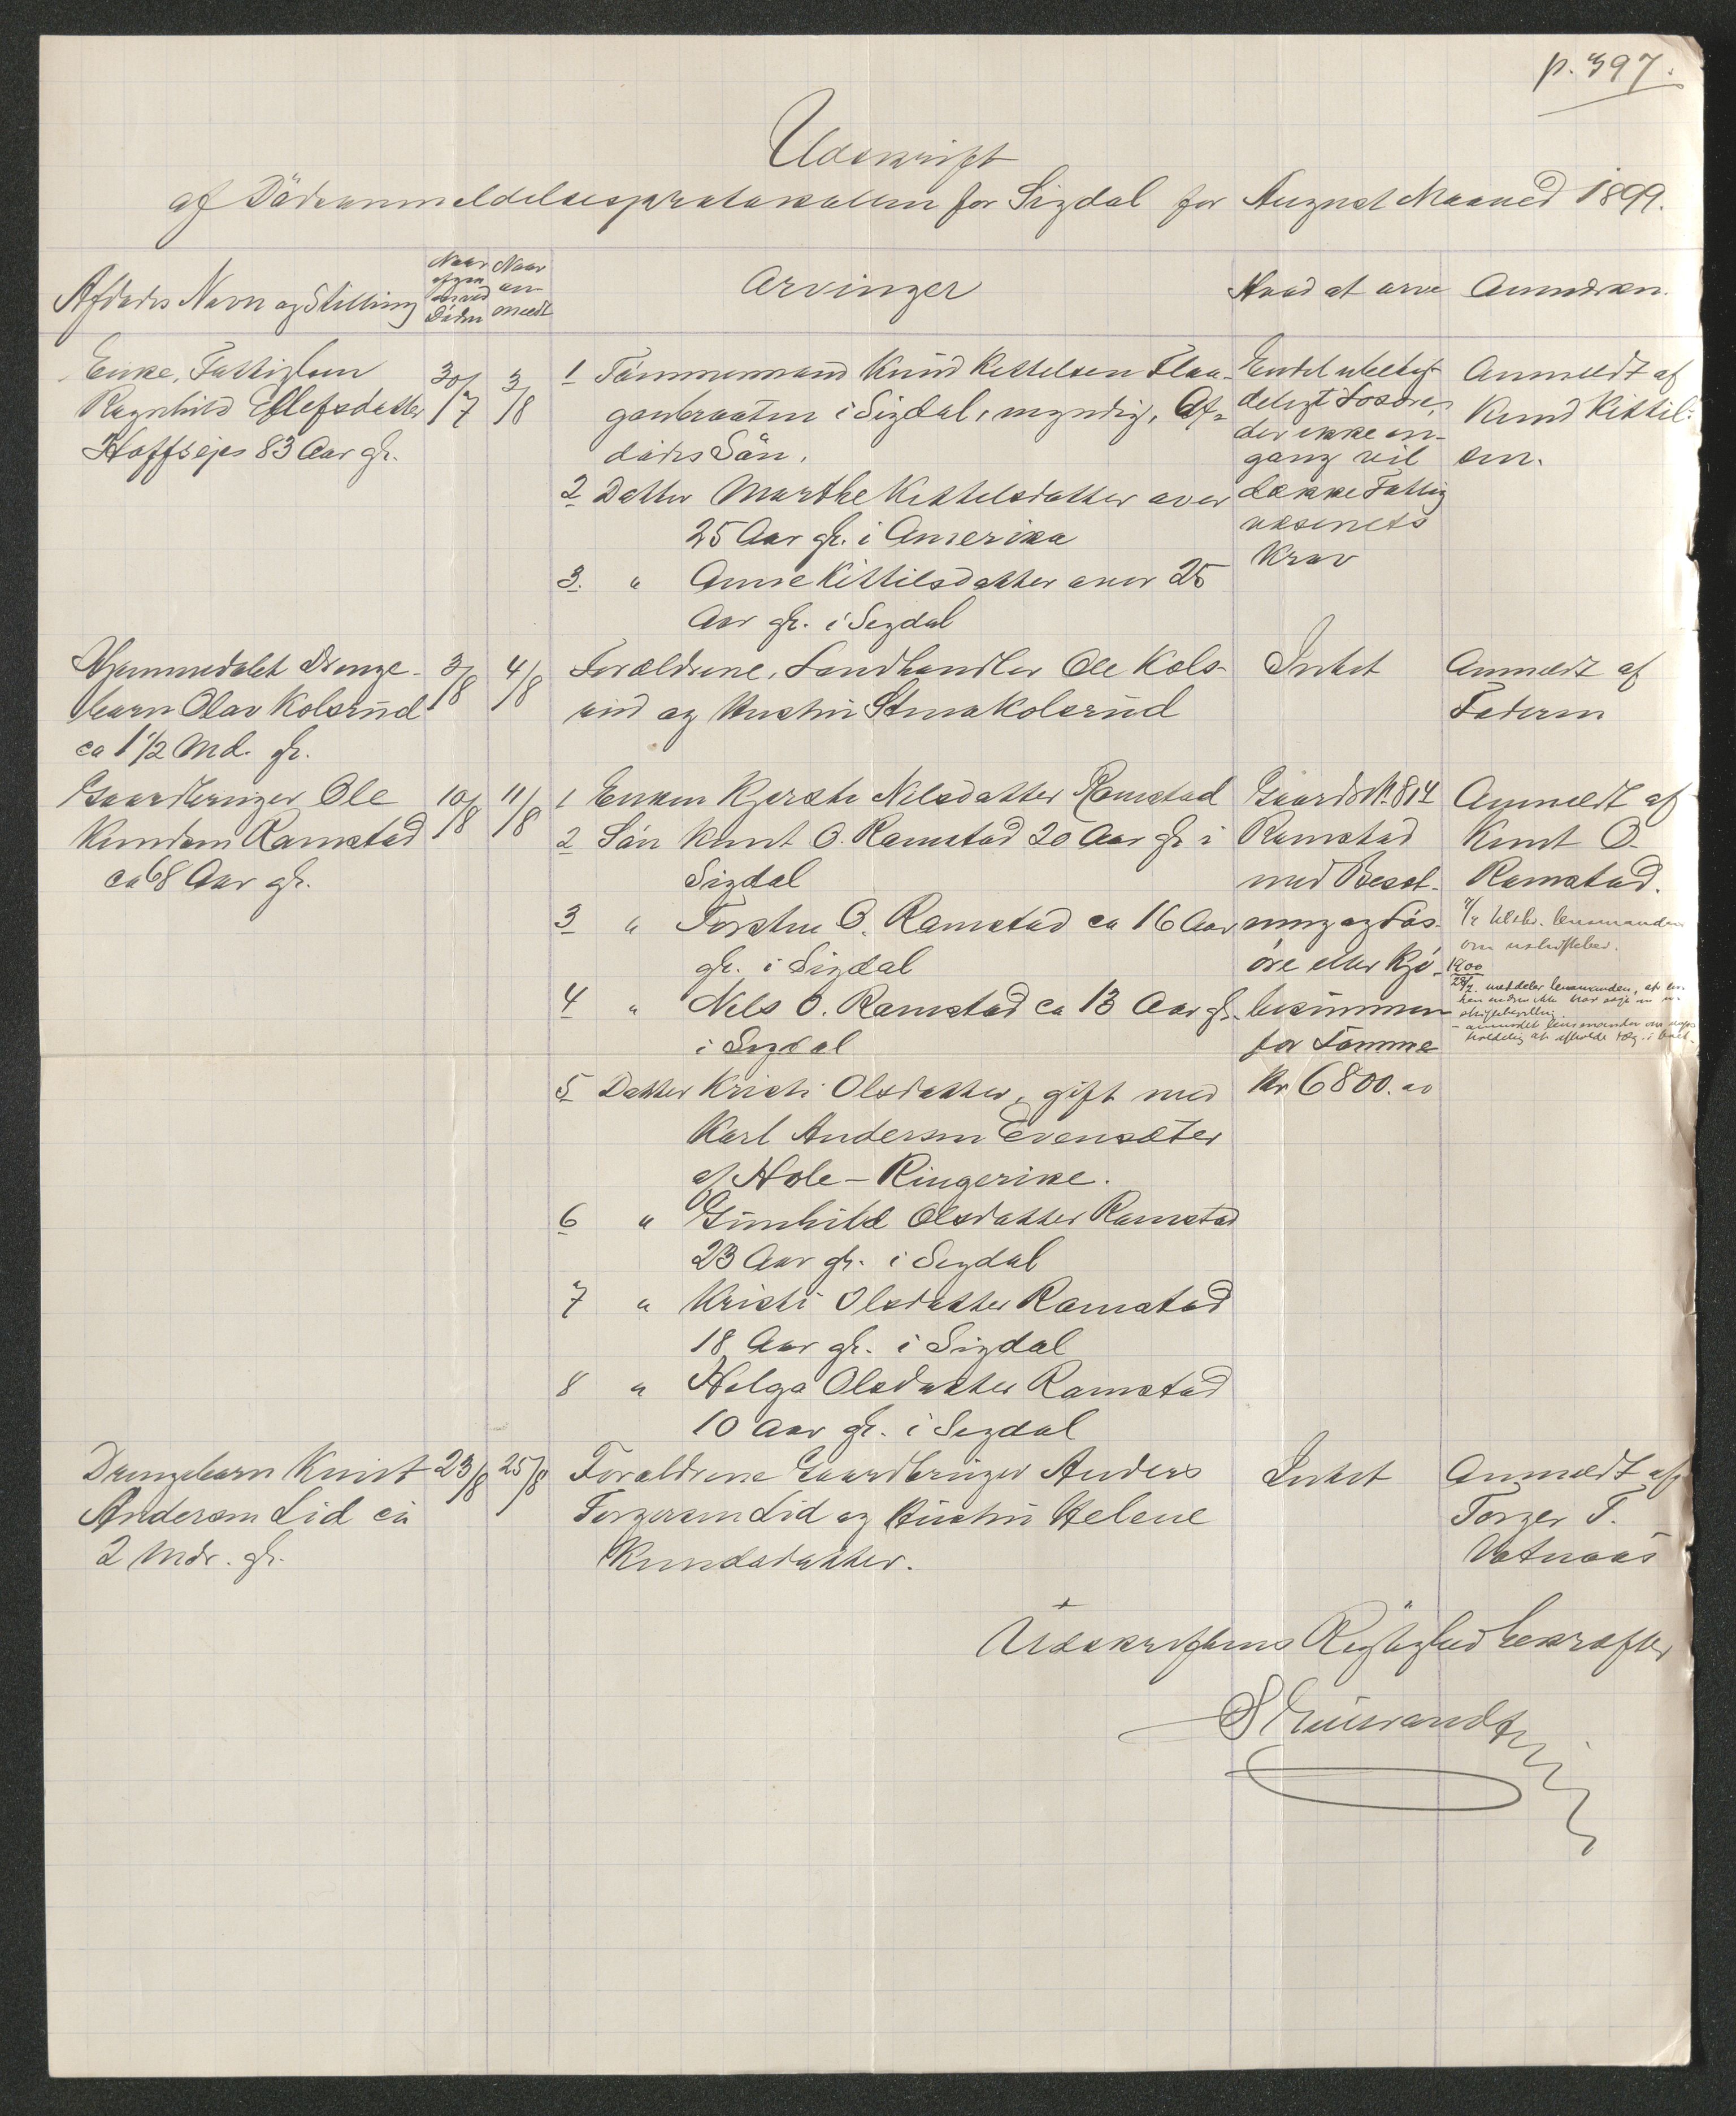 p. 397.
Udskrift
af Dødsanmeldelsesprotokollen for Sigdal for August Maaned 1899.
Afdødes Navn og Stilling
Naar afgaa ved Døden
Naar anmeldt
Arvinger
Hvad at arve
Anmærkn.
Enke, Fattiglem
Ragnhild Ellefsdatter
Hoffsejes 83 Aar gl.
30/7
3/8
1 Tømmermand Knud Kittelsen Flaa-
ganbraaten i Sigdal, myndig, Af-
dødes Søn.
2 Datter Marthe Kittelsdatter over
25 Aar gl. i Amerika
3. " Anne Kittilsdatter over 25
Aar gl. i Sigdal
Endel ubetyd-
deligt Løsøre,
der ikke en-
gang vil
dække Fattig
væsenets
Krav
Anmeldt af
Knud Kittil-
sen.
Hjemmedøbt Drenge-
barn Olav Kolsrud
ca 1 1/2 Md. gl.
3/8
4/8
Forældrene, Landhandler Ole Kols-
rud og Hustru Stina Kolsrud
Intet
Anmeldt af
Faderen
Gaardbruger Ole
Knudsen Ramstad
ca 68 Aar gl.
10/8
11/8
1 Enken Kjersti Nilsdatter Ramstad
2 Søn Knut O. Ramstad 20 Aar gl. i
Sigdal
3 " Torsten O. Ramstad ca 16 Aar
gl. i Sigdal
4 " Nils O. Ramstad ca 13 Aar gl.
i Sigdal
5 Datter Kristi Olsdatter, gift med
Karl Andersen Evensæter
af Hole - Ringerike.
6 " Gunhild Olsdatter Ramstad
23 Aar gl. i Sigdal
7 " Kristi Olsdatter Ramstad
18 Aar gl. i Sigdal
8 " Helga Olsdatter Ramstad
10 Aar gl. i Sigdal
Ramstad
med Besæt-
ning og Løs-
øre efter Kjø-
besummen
for Samme
Kr 6800.00
Anmeldt af
Knut O.
Ramstad.
lensmanden
om
1900
meddeler lensmanden, at
Drengebarn Knut
Andersen Lid ca
2 Mdr. gl.
23/8
25/8
Forældrene Gaardbruger Anders
Torgersen Lid og Hustru Helene
Knudsdatter.
Intet
Anmeldt af
Torger T.
Vatnaas
Udskriftens Rigtighed bekræftes